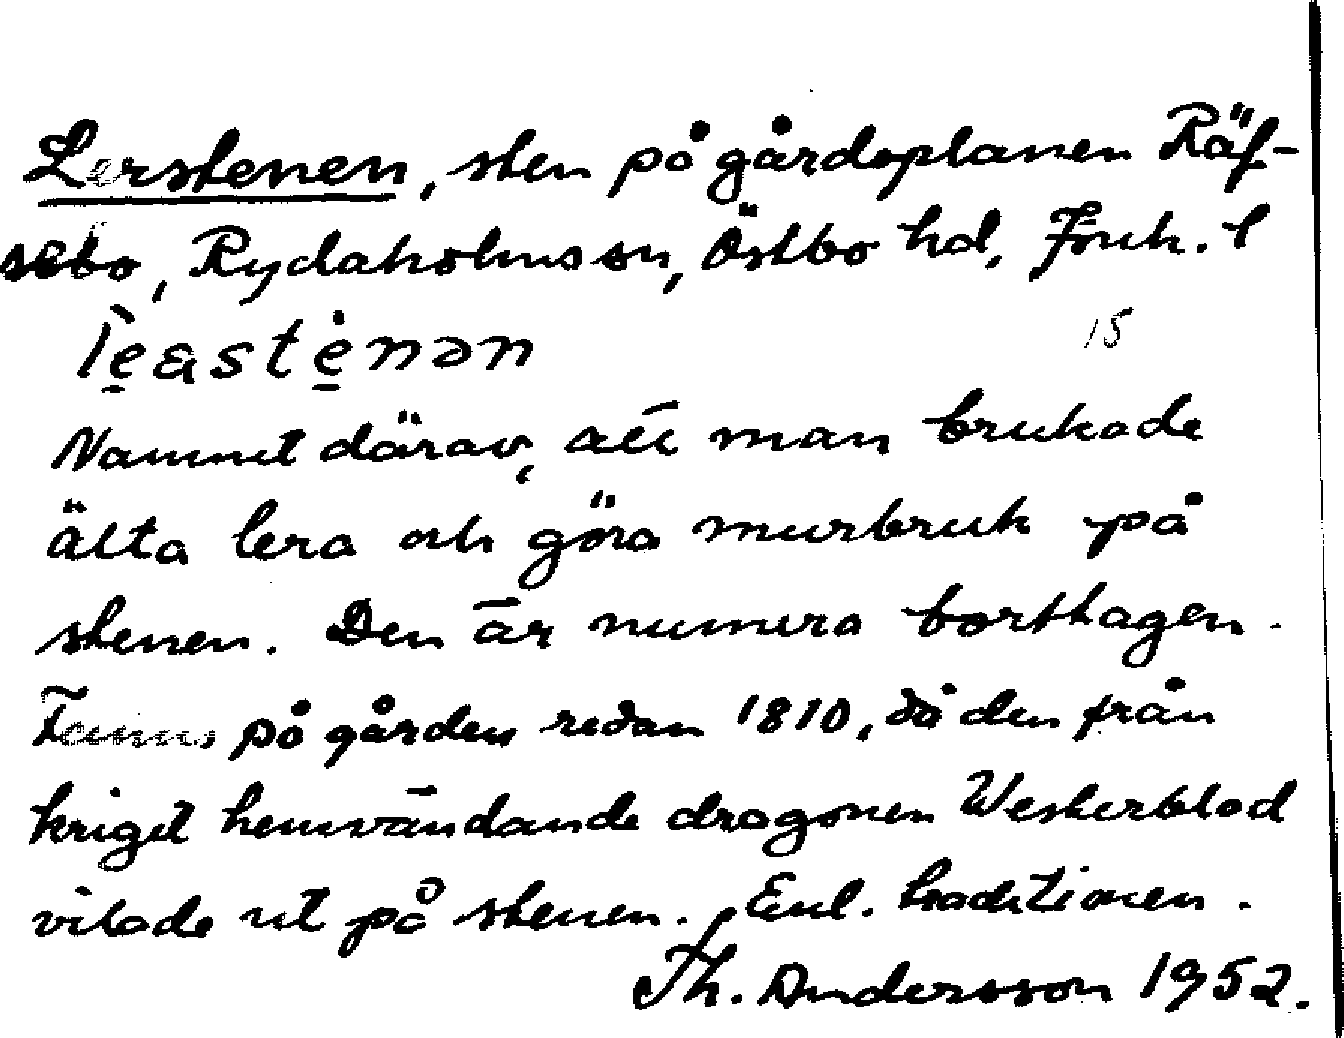 Lerstenen, sten på gårdsplanen Räf-
sebo, Rydaholms sn, Östbo hd, Jönk. l
15
Namnet därav, att man brukade
älta lera och göra murbruk på
stenen. Den är numera borttagen.
Fanns på gården redan 1810, då den från
kriget hemvändande dragonen Westerblad
vilade ut på stenen. Enl. traditionen.
Th. Andersson 1952.